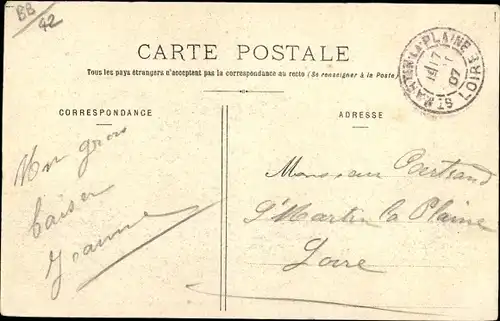 BB
42
CARTE POSTALE
Tous les pays étrangers n'acceptent pas la correspondance au recto (Se renseigner à la Poste)
CORRESPONDANCE
ADRESSE
ST MARTIN-LA-PLAINE
LOIRE
07
Mon gros
baiser
Jeanne
Monsieur Bertrand
St Martin la Plaine
Loire